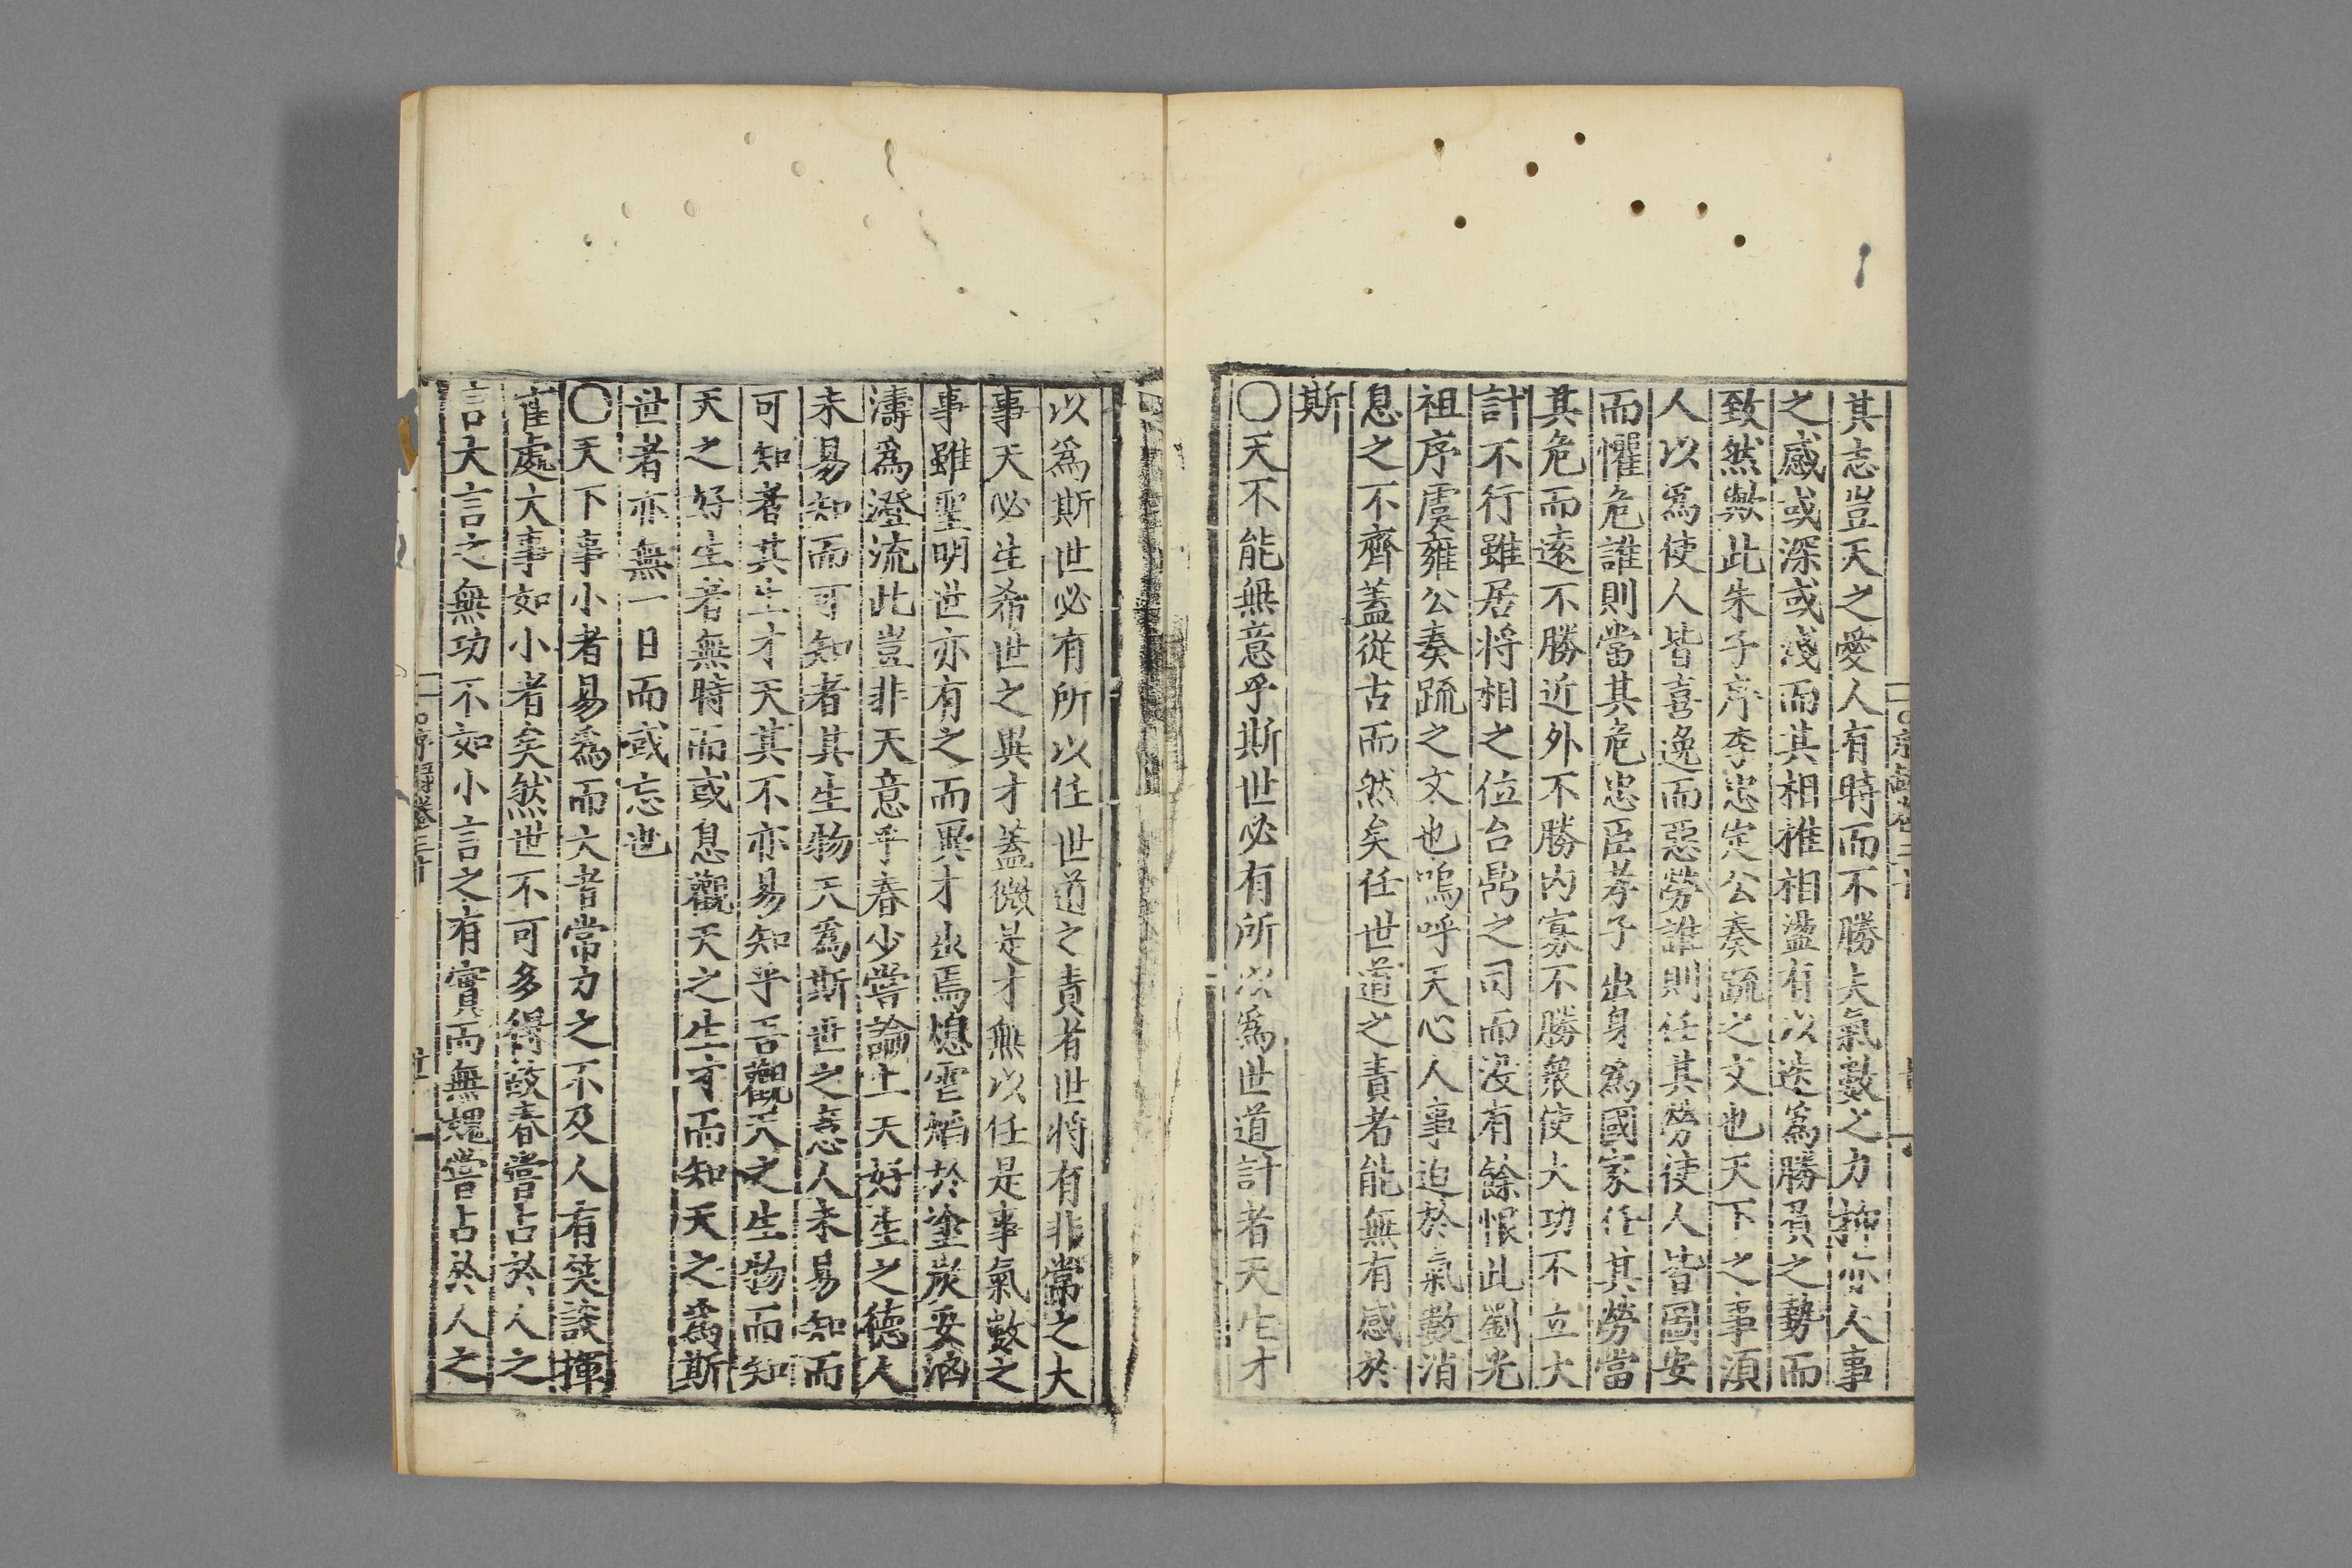 其志豈天之愛人有時而不勝夫氣數之力抑亦人事
之感或深或淺而其相推相盪有以迭爲勝負之勢而
致然歟此朱子序李忠定公奏䟽之文也天下之事湏
人以爲使人皆喜逸而惡勞誰則任其勞使人皆圖安
而懼危誰則當其危忠臣孝子出身爲國家任其勞當
其危而遠不勝近外不勝内寡不勝衆使大功不立大
計不行雖居将相之位台鼎之司而没有餘恨此劉光
祖序虞雍公奏䟽之文也嗚呼天心人事迫於氣數消
息之不齊蓋從古而然矣任世道之責者能無有感於
斯
○天不能無意乎斯世必有所以爲世道計者天生才
以爲斯世必有所以任世道之責者世将有非常之大
事天必生希世之異才蓋微是才無以任是事氣數之
事雖聖明世亦有之而異才出焉熄雹熖於塗炭妥洶
濤爲澄流此豈非天意乎春少嘗論上天好生之德人
未易知而可知者其生物天爲斯世之意人未易知而
可知者其生才天其不亦易知乎吾觀天之生物而知
天之好生者無時而或息觀天之生才而知天之爲斯
世者亦無一日而或忘也
○天下事小者易爲而大者常力之不及人有笑談揮
霍處大事如小者矣然世不可多得故春嘗占於人之
言大言之無功不如小言之有實而無媿嘗占於人之